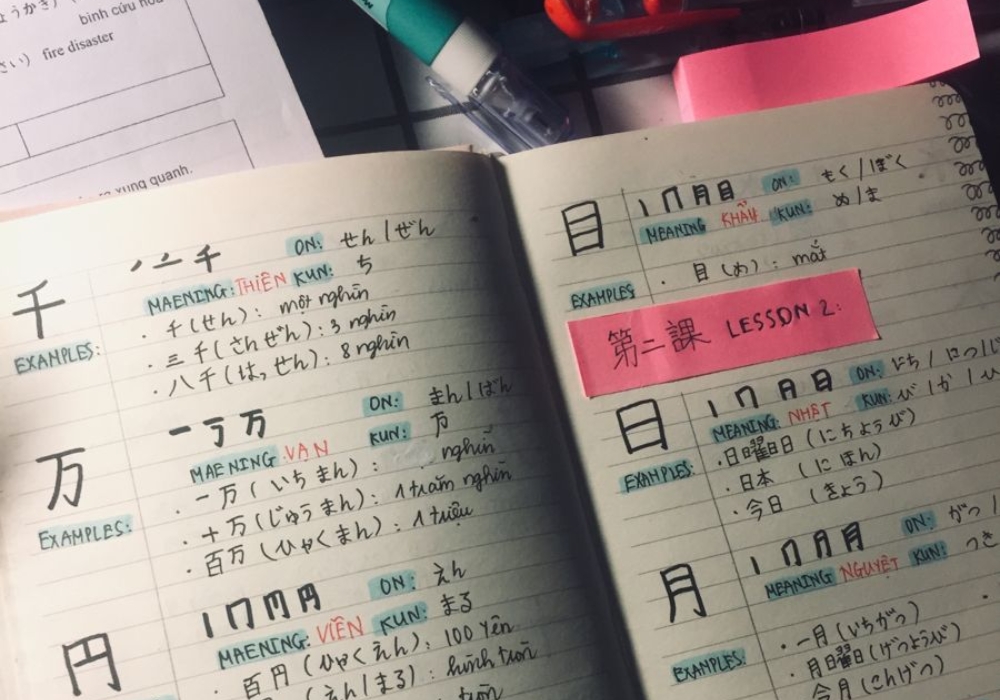 bình cứu hỏa
fire disaster
xung quanh.
千
ノ 二 千 ON: せん / ぜん
MAENING: THIÊN KUN: ち
EXAMPLES:
・千 (せん) : một nghìn
・三千 (さんぜん) : 3 nghìn
・八千 (はっせん) : 8 nghìn
万
一 丂 万 ON: まん / ばん
MAENING VẠN KUN: 万
EXAMPLES:
・一万 (いちまん) : nghìn
・十万 (じゅうまん) : 1 trăm nghìn
・百万 (ひゃくまん) : 1 triệu
円
円 ON: えん
MAENING: VIÊN KUN: まる
・百円 (ひゃくえん) : 100 Yên
(えん / まる) : hình tròn
tròn
目
月 目 ON: もく / ぼく
MEANING KHẨU KUN: め / ま
EXAMPLES
・目 (め) : mắt
第二課 LESSON 2:
日
月 日 ON: にち / につ / じ
MEANING: NHẬT KUN: び / か / ひ
EXAMPLES:
・日曜日 (にちようび)
・日本 (にほん)
・今日 (きょう)
月
月 月 ON: がつ /
MEANING NGUYỆT KUN: つき
EXAMPLES:
・一月 (いちがつ)
・月曜日 (げつようび)
・今月 (こんげつ)